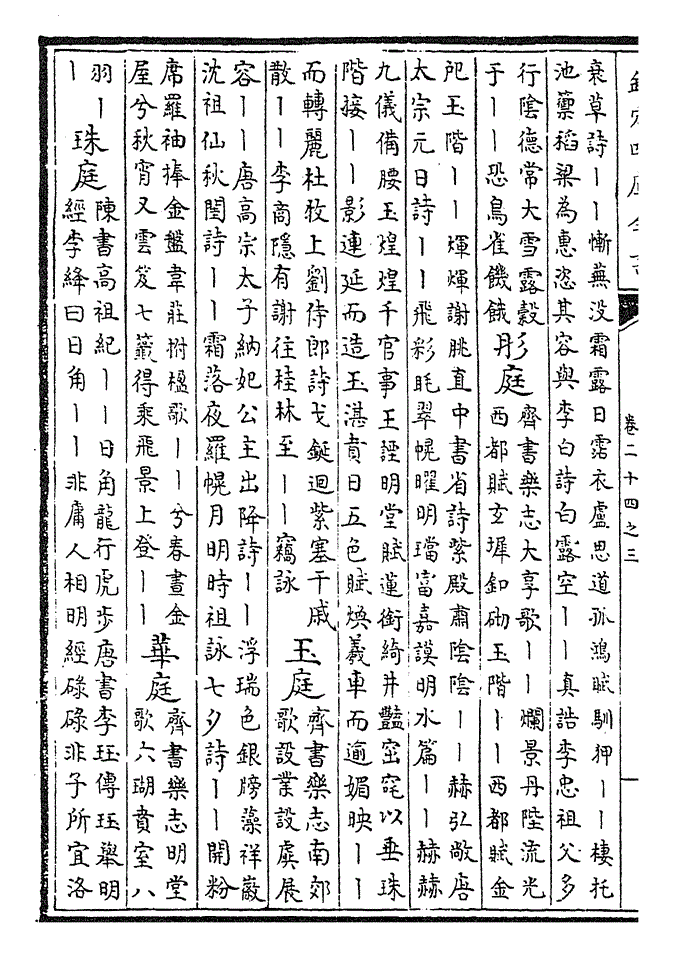 欽定四庫全書
卷二十四之三
衰草詩｜｜漸蕪没霜露日霑衣盧思道孤鴻賦馴狎｜｜棲托
池籞稻梁為惠恣其容與李白詩白露空｜｜真誥李忠祖父多
行陰德常大雪露糓
于｜｜恐鳥雀饑餓
彤庭
齊書樂志大享歌｜｜爛景丹陛流光
西都賦玄墀釦砌玉階｜｜西都賦金
戺玉階｜｜煇煇謝朓直中書省詩紫殿肅陰陰｜｜赫弘敞唐
太宗元日詩｜｜飛彩眊翠幌曜明璫富嘉謨明水篇｜｜赫赫
九儀備腰玉煌煌千官事王諲明堂賦蓮銜綺井豔窋窕以垂珠
階接｜｜影連延而造玉湛賁日五色賦焕羲車而逾媚映｜｜
而轉麗杜牧上劉侍郎詩戈鋋迴紫塞干戚
散｜｜李商隱有謝往桂林至｜｜竊詠
玉庭
齊書樂志南郊
歌設業設虡展
容｜｜唐高宗太子納妃公主出降詩｜｜浮瑞色銀牓藻祥徽
沈祖仙秋閨詩｜｜霜落夜羅幌月明時祖詠七夕詩｜｜開粉
席羅袖捧金盤韋莊拊楹歌｜｜兮春晝金
屋兮秋宵又雲笈七籤得乘飛景上登｜｜
華庭
齊書樂志明堂
歌六瑚賁室八
羽｜
｜
珠庭
陳書高祖紀｜｜日角龍行虎步唐書李珏傳珏舉明
經李絳曰日角｜｜非庸人相明經碌碌非子所宜洛